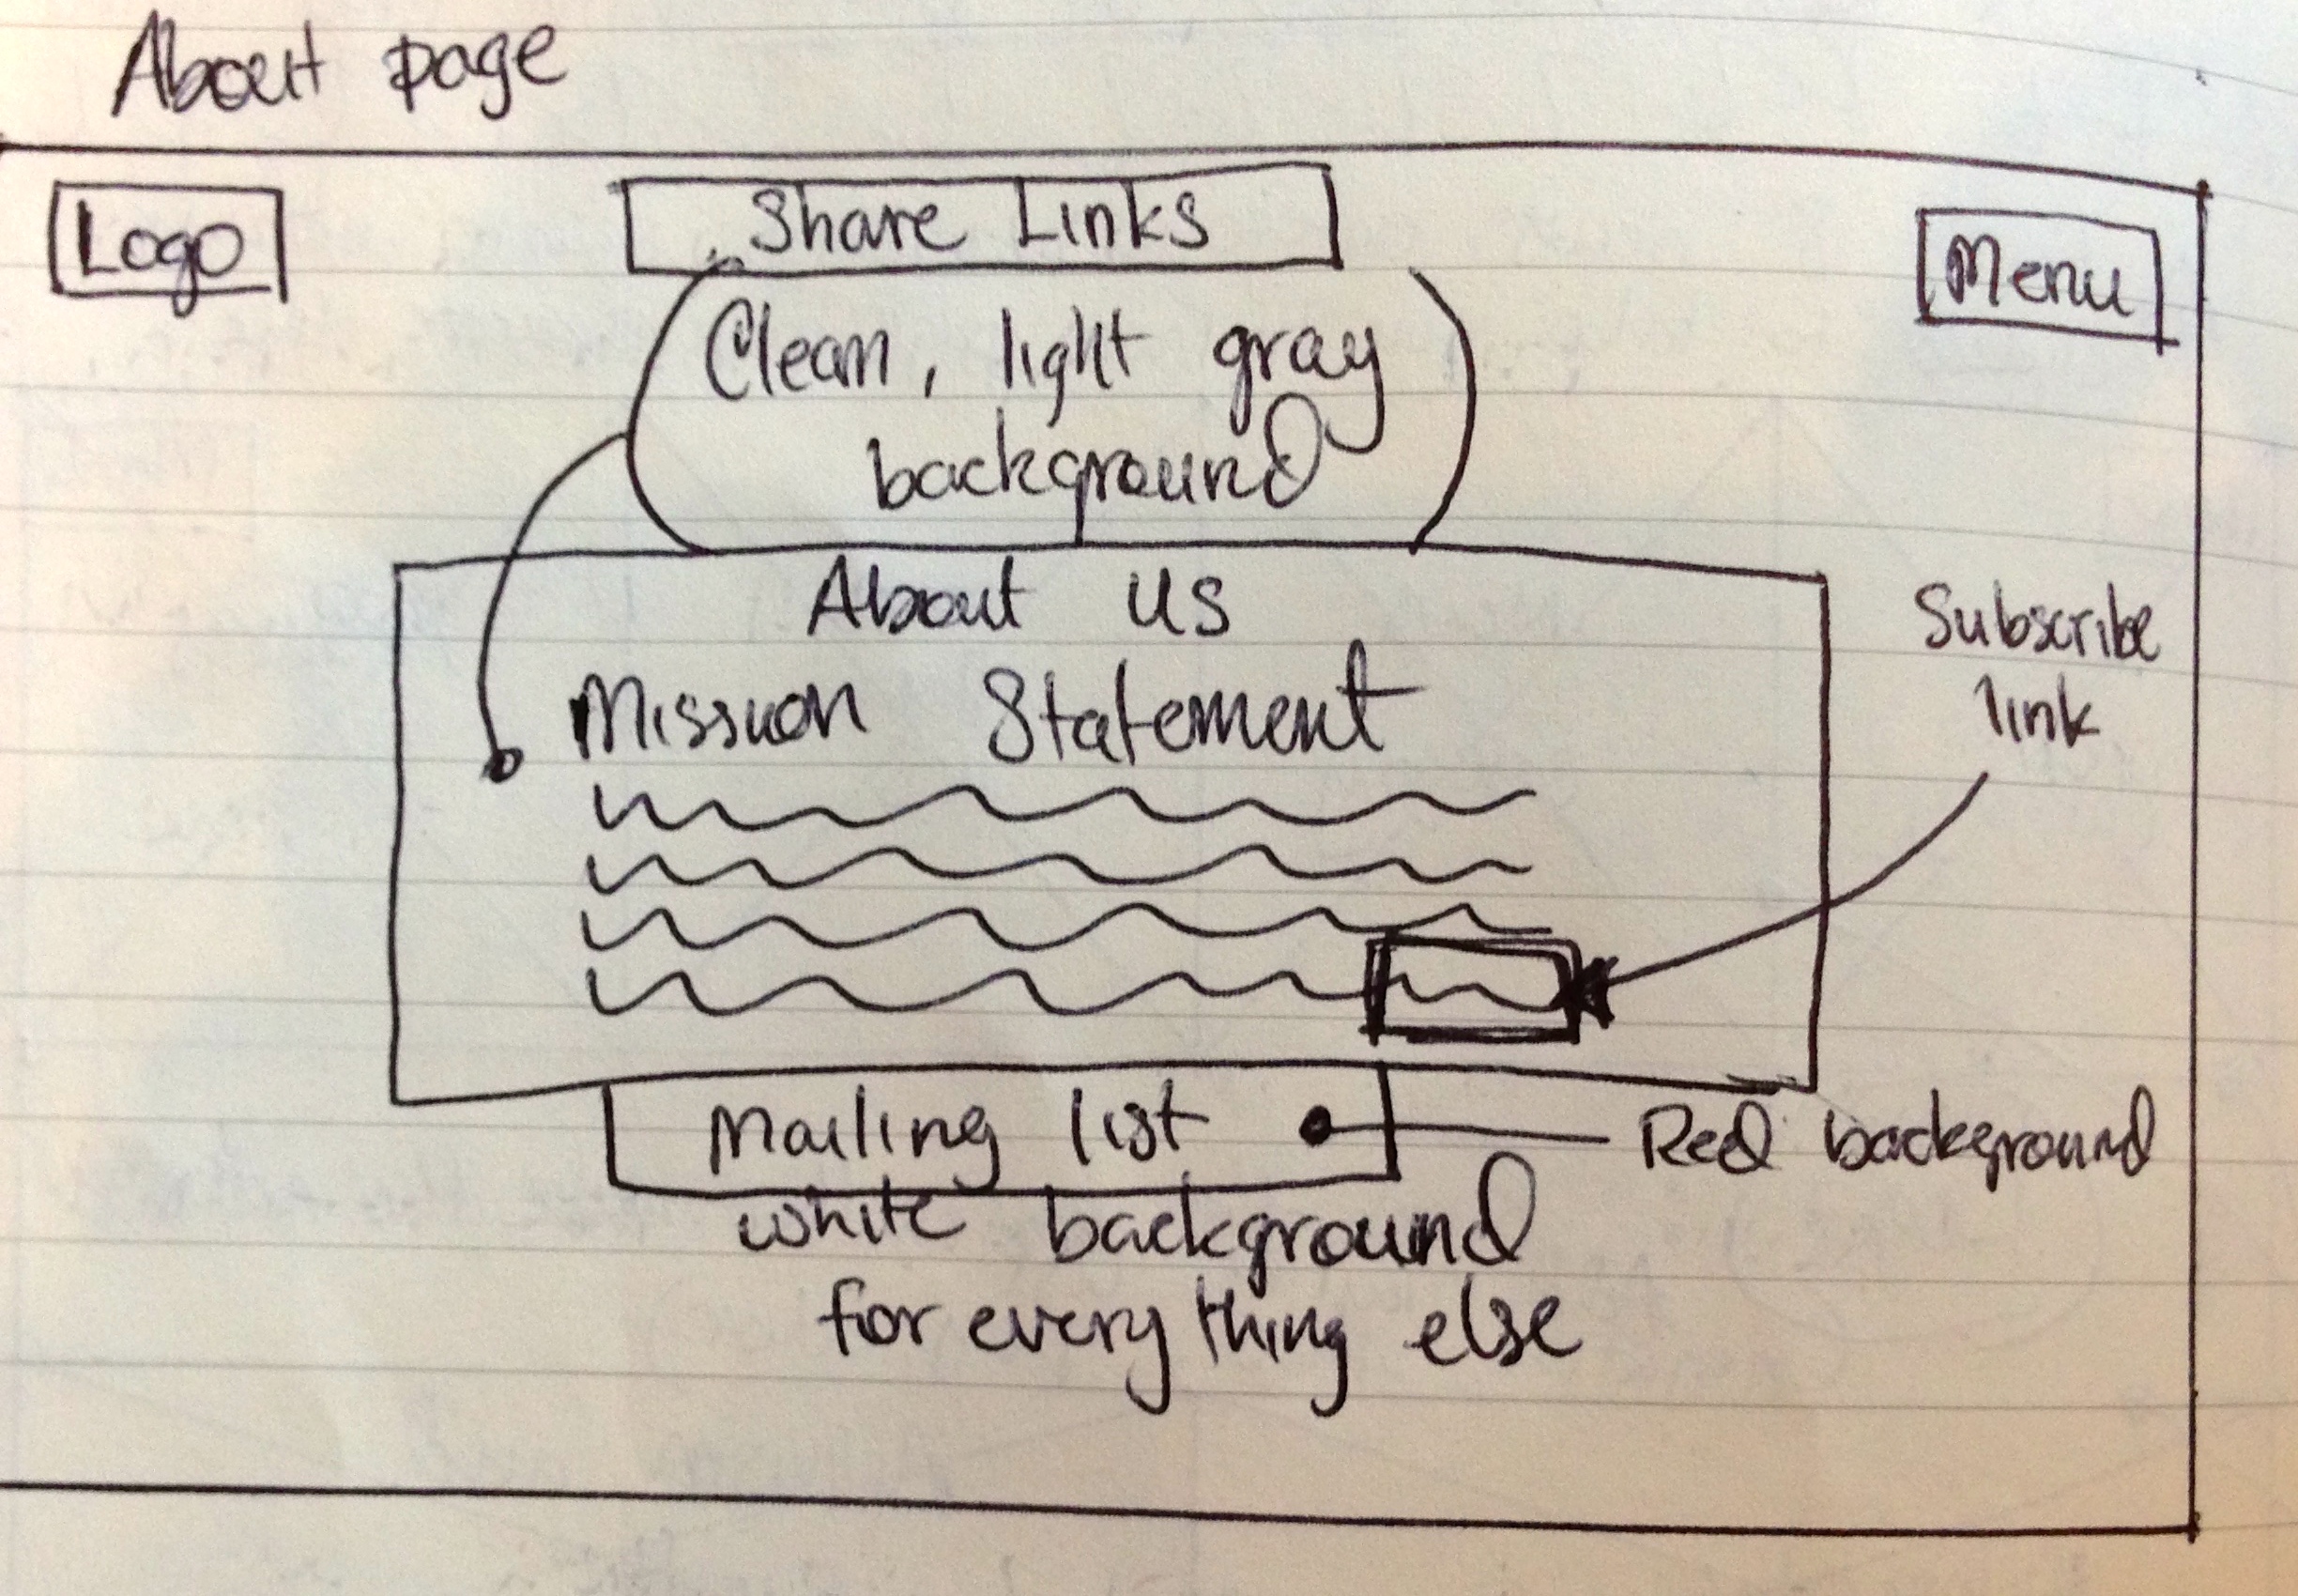 About page
Logo
Share Links
Menu
Clean, light gray
background
About us
Mission Statement
Subscribe
link
Mailing list
Red background
white background
for everything else